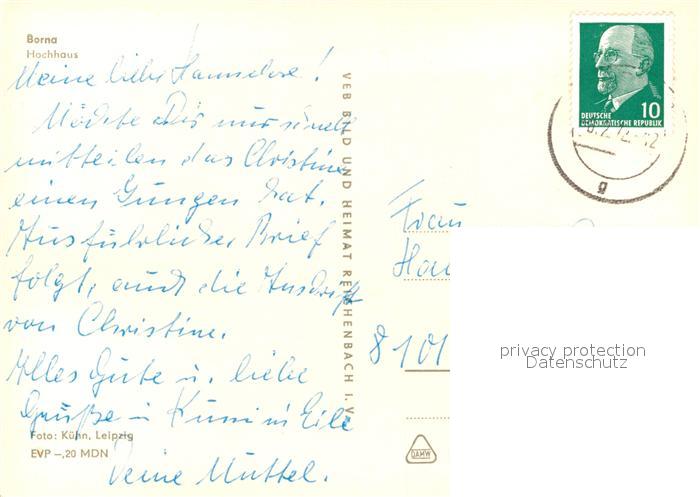 Borna
Hochhaus
Meine liebe Hannelore!
Möchte Dir nur schnell
mitteilen das Christine
einen Jungen hat.
Ausführlicher Brief
folgt, auch die Anschrift
von Christine.
Alles Gute u. liebe
Grüße in Eile
Deine Muttel.
Foto: Kühn, Leipzig
EVP –,20 MDN
VEB BILD UND HEIMAT REICHENBACH I. V.
DEUTSCHE
DEMOKRATISCHE REPUBLIK
10
g
Frau
8101
DAMW
privacy protection
Datenschutz